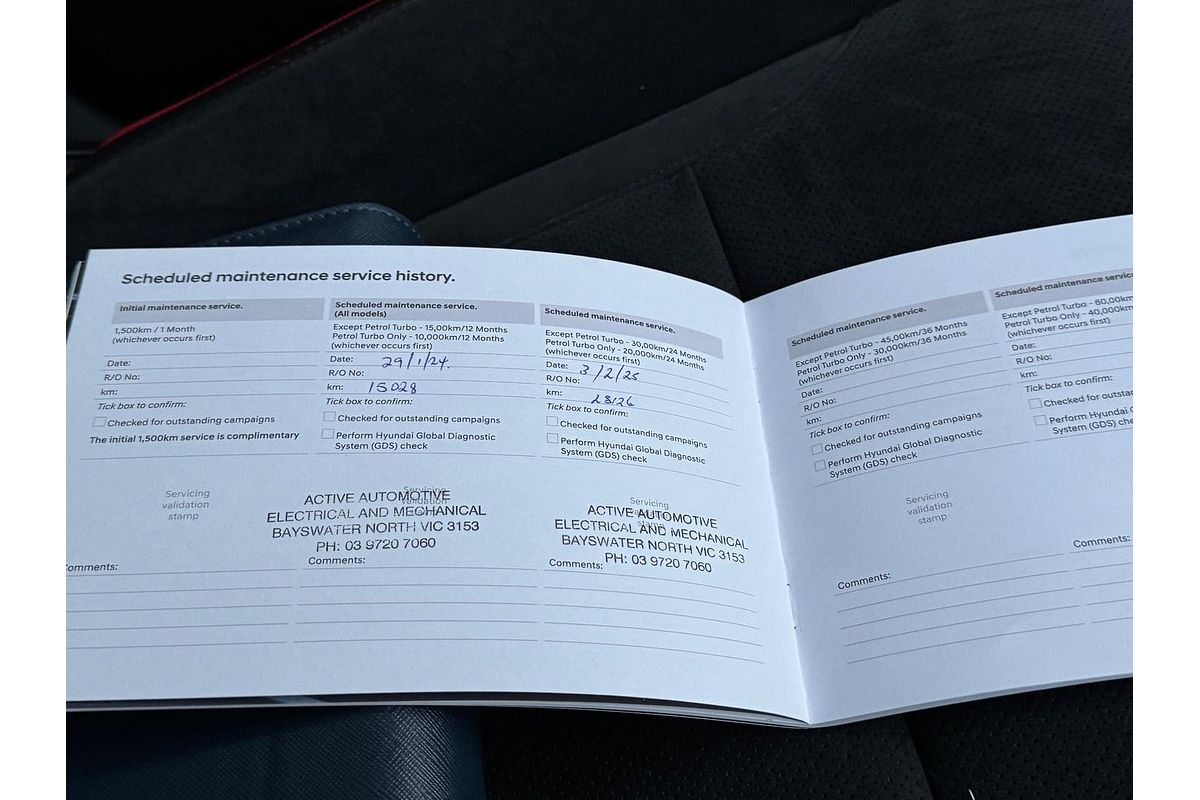 Scheduled maintenance service history.
Initial maintenance service.
1,500km / 1 Month
(whichever occurs first)
Date:
R/O No:
km:
Tick box to confirm:
Checked for outstanding campaigns
The initial 1,500km service is complimentary
Servicing
validation
stamp
Comments:
Scheduled maintenance service.
(All models)
Except Petrol Turbo - 15,00km/12 Months
Petrol Turbo Only - 10,000km/12 Months
(whichever occurs first)
Date: 29/1/24.
R/O No:
km: 15028
Tick box to confirm:
Checked for outstanding campaigns
Perform Hyundai Global Diagnostic
System (GDS) check
Servicing
validation
ACTIVE AUTOMOTIVE
ELECTRICAL AND MECHANICAL
BAYSWATER NORTH VIC 3153
PH: 03 9720 7060
Comments:
Scheduled maintenance service.
Except Petrol Turbo - 30,00km/24 Months
Petrol Turbo Only - 20,000km/24 Months
(whichever occurs first)
Date: 3/2/25
R/O No:
km: 28126
Tick box to confirm:
Checked for outstanding campaigns
Perform Hyundai Global Diagnostic
System (GDS) check
Servicing
validation
stamp
ACTIVE AUTOMOTIVE
ELECTRICAL AND MECHANICAL
BAYSWATER NORTH VIC 3153
PH: 03 9720 7060
Comments:
Scheduled maintenance service.
Except Petrol Turbo - 45,00km/36 Months
Petrol Turbo Only - 30,000km/36 Months
(whichever occurs first)
Date:
R/O No:
km:
Tick box to confirm:
Checked for outstanding campaigns
Perform Hyundai Global Diagnostic
System (GDS) check
Servicing
validation
stamp
Comments:
Scheduled maintenance
Except Petrol Turbo - 60,00km
Petrol Turbo Only - 40,000km
(whichever occurs first)
Date:
R/O No:
km:
Tick box to confirm:
Checked for
Perform Hyundai
System (GDS)
Comments: